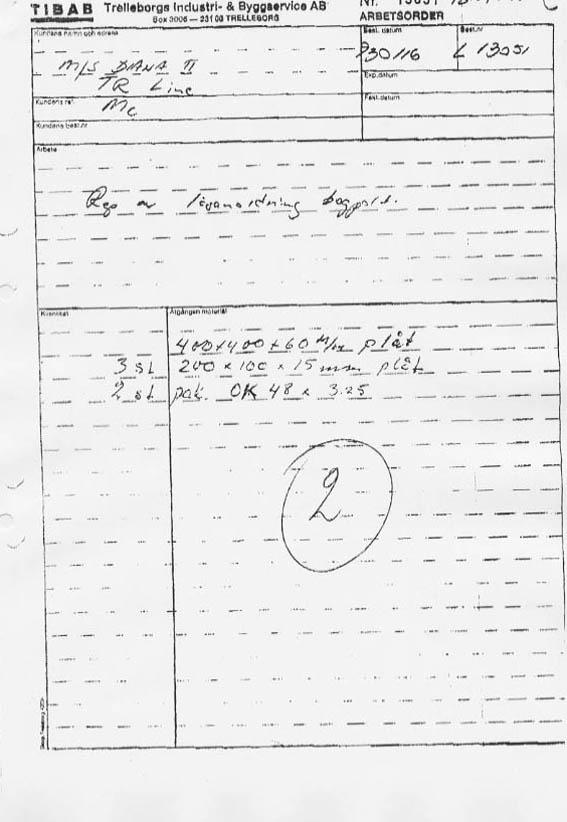 TIBAB Trelleborgs Industri- & Byggservice AB
Box 3006 — 23103 TRELLEBORG
Nr. 13051
ARBETSORDER
Kundens namn och adress
M/S DANA II
TR Line
Best. datum
930116
Best.nr
L 13051
Exp.datum
Kundens ref.
Mc
Fakt.datum
Kundens best.nr
Arbete
Rep av låsanordning bogport.
Kvantitet
Åtgången material
400x400x60 M/m plåt
3 st 200 x 100 x 15 mm plåt
2 st pak. OK 48 x 3.25
2